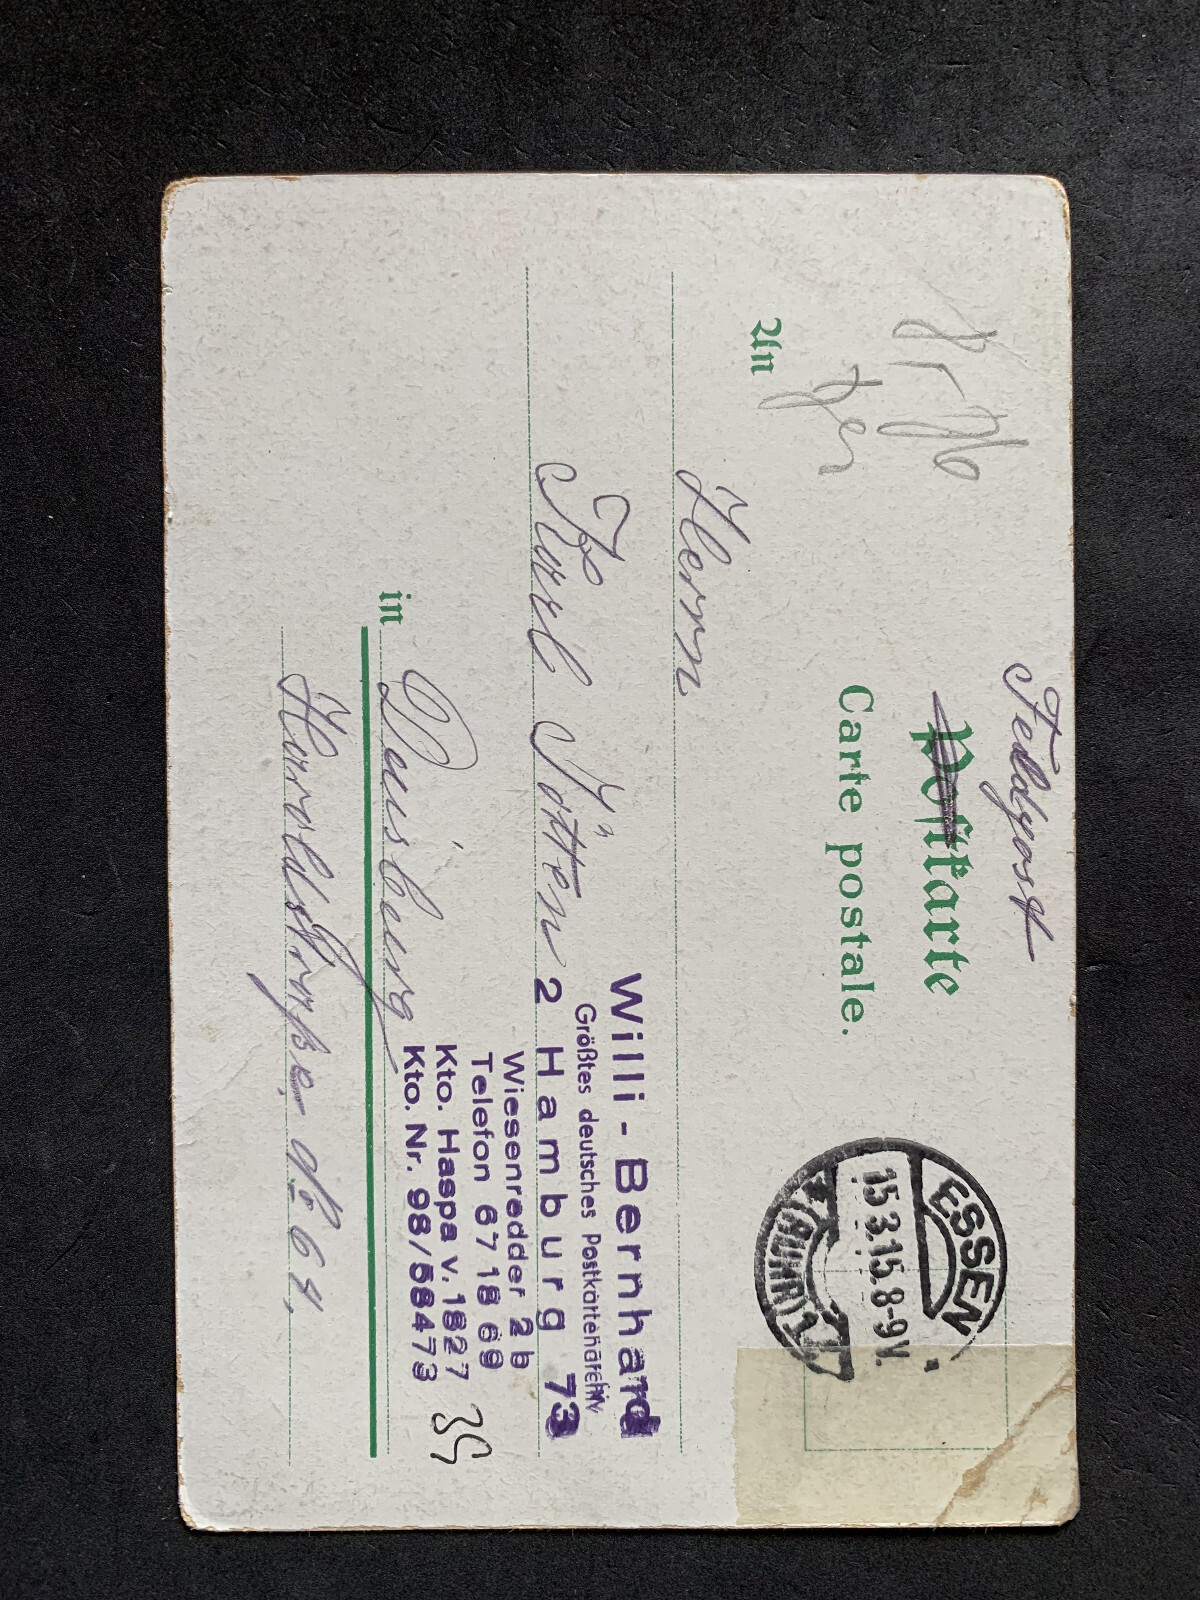 Feldpost
Postkarte
Carte postale.
ESSEN
15.3.15.8-9V.
(RUHR)
An
Herrn
Karl Jötten
in Duisburg
Haroldstraße No 64,
Willi-Bernhard
Größtes deutsches Postkartenarchiv
2 Hamburg 73
Wiesenredder 2b
Telefon 67 18 69
Kto. Haspa v. 1827
Kto. Nr. 98/58473